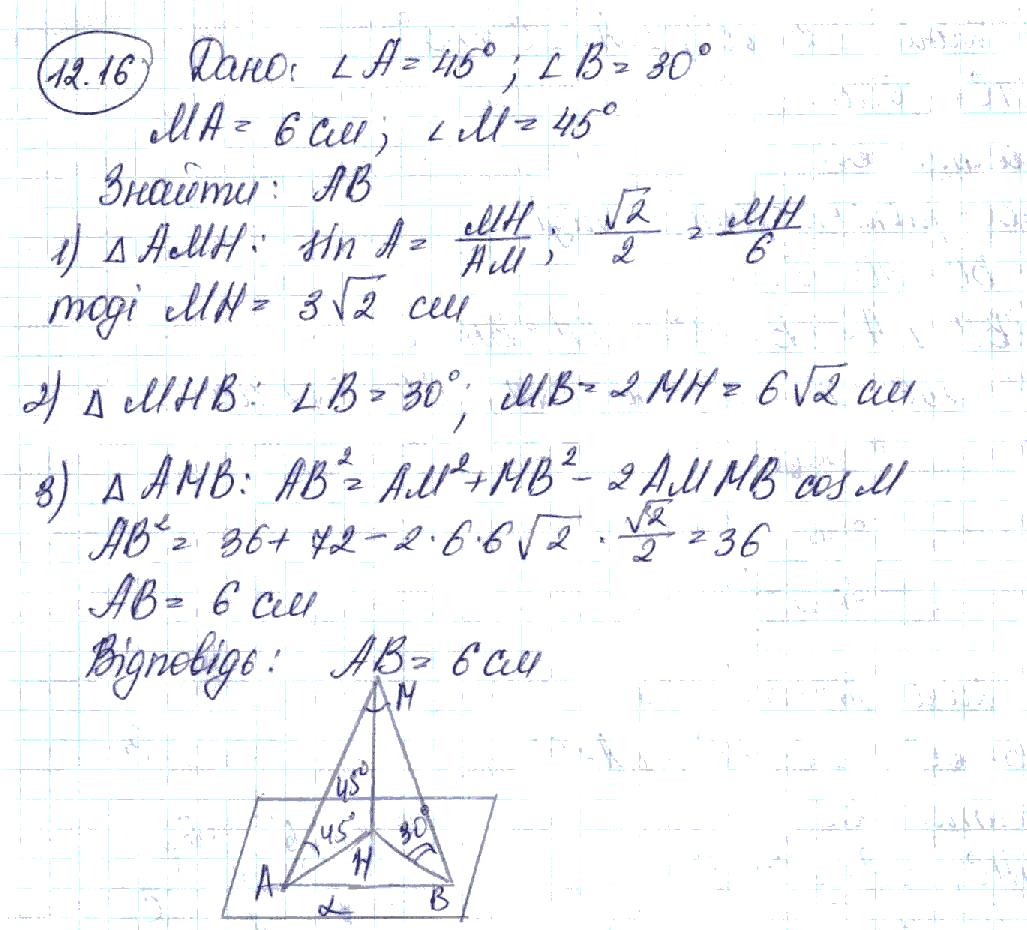 12.16 Дано: ∠A = 45°; ∠B = 30°
MA = 6 см; ∠M = 45°
Знайти: AB
1) △AMH: sin A = MH/AM; √2/2 = MH/6
тоді MH = 3√2 см
2) △MHB: ∠B = 30°; MB = 2MH = 6√2 см
3) △AMB: AB² = AM² + MB² - 2AM MB cos M
AB² = 36 + 72 - 2·6·6√2 · √2/2 = 36
AB = 6 см
Відповідь: AB = 6 см
M
45°
45°
30°
H
A
B
α